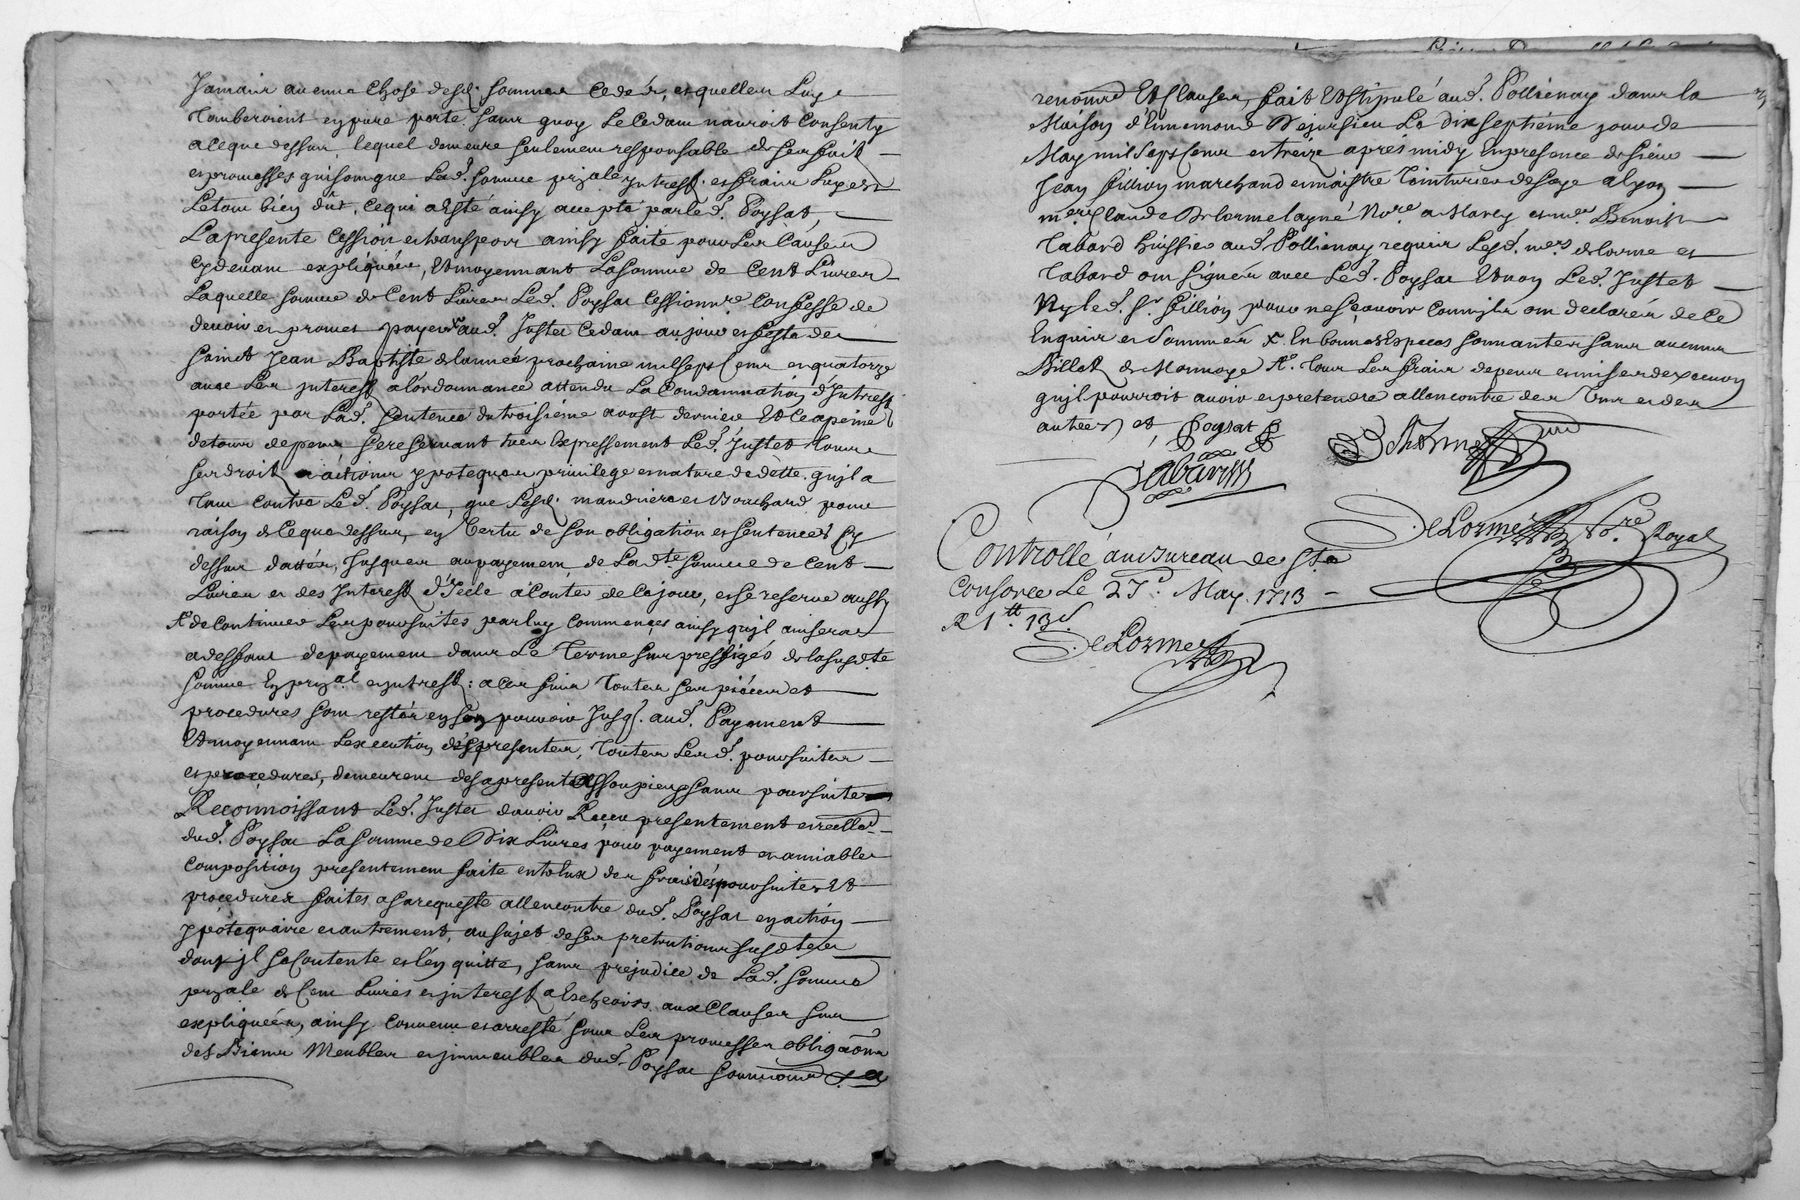 Jamais aucune Chose desd. sommes Cedées, et quelles Luy
Tomberoient en pure perte sans quoy Le Cedant n'auroit Consenty
a Ceque dessus, lequel demeure seulement responsable de ses faits
et promesses qui sont que Lad. somme prijale jntrest. et frais Luy est
Le tout bien dut, Ce qui a Esté ainsy accepté par led. Poysat,
La presente Cession et transport ainsy faite pour Les Causes
Cydevant expliquées, Et moyennant La somme de Cent Livres
Laquelle somme de Cent Livres Led. Poysat Cessionnre Confesse de
devoir et promet payer aud. Justet Cedant au jour et feste de
Sainct Jean Baptiste de l'année prochaine mil sept Cent et quatorze
avec Les jnterest a l'ordonnance attendu La Condamnation d'Jntrest
portée par Lad. Sentence du troisième aoust dernier Et Ce a peine
de tous depens se reservant tres Expressement Led. Justet Tous
ses droits et actions ypoteques privilege et nature de dette qu'jl a
Tant Contre Led. Poysat, que Lesd. mandriere et Bouchard pour
raison de Ceque dessus, en Vertu de son obligation et sentences Cy
dessus dattées, Jusques au payement de La dte somme de Cent
Livres et des Jnterest d'Jcelle a Conter de Ce jour, et se reserve aussy
de Continuer Les poursuites par luy Commencées ainsy qu'jl avisera
a deffaut de payement dans Le Terme sus preffigés de la susdte
somme En prjal et jntrest: a Ces fins Toutes ses pièces et
procedures sont restées en son pouvoir Jusq. aud. Payement
Et moyennant L'execution des presentes, Toutes Lesd. poursuites
et procedures, demeurent des a present assoupies sans poursuites
Reconnoissant Led. Justet d'avoir Receu presentement et reellt
dud. Poysat La somme de Dix Livres pour payement et amiable
Composition presentement faite entr'eux des frais des poursuites Et
procedures faites a sa requeste allencontre dud. Poysat en action
ypotequaire et autrement, au sujet de ses pretentions susdtes
dont jl se Contente et l'en quitte, sans prejudice de Lad. somme
prjale de Cent Livres et jnterest a Escheoirs aux Clauses sus
expliquées, ainsy Convenu et arresté sous Les promesses obligaõns
des Biens Meubles et jmmeubles dud. Poysat soumissions
renonrd Et Clauses, fait Et stipulé aud. Pollienay dans la
Maison d'Ennemond Dejursieu Le Dix septième jour de
May mil sept Cent et treize apres midy En presence de sieur
Jean fillion marchand et maistre Teinturier de soye a lyon
mere Claude Delorme layné Nore a Marcy et mre Benoist
Tabard huissier aud. Pollienay requis Lesd. mrs. delorme et
Tabard ont signés avec Led. Poysat Et non Led. Justet
Ny led. sr. fillion pour ne sçavoir Comm'jls ont declarés de Ce
Enquis et Sommés x. En bonnes Especes sonnantes sans aucuns
Billets de Monnoye Ae. Tous Les frais depens et mises d'execution
qu'jl pourroit avoir et pretendre allencontre des Uns et des
autres et
Poysat
Delorme
Tabard
DeLorme Nore. Royal
Controllé au Bureau de Ste
Consorce Le 27e. May 1713
R 1tt. 13s.
DeLorme